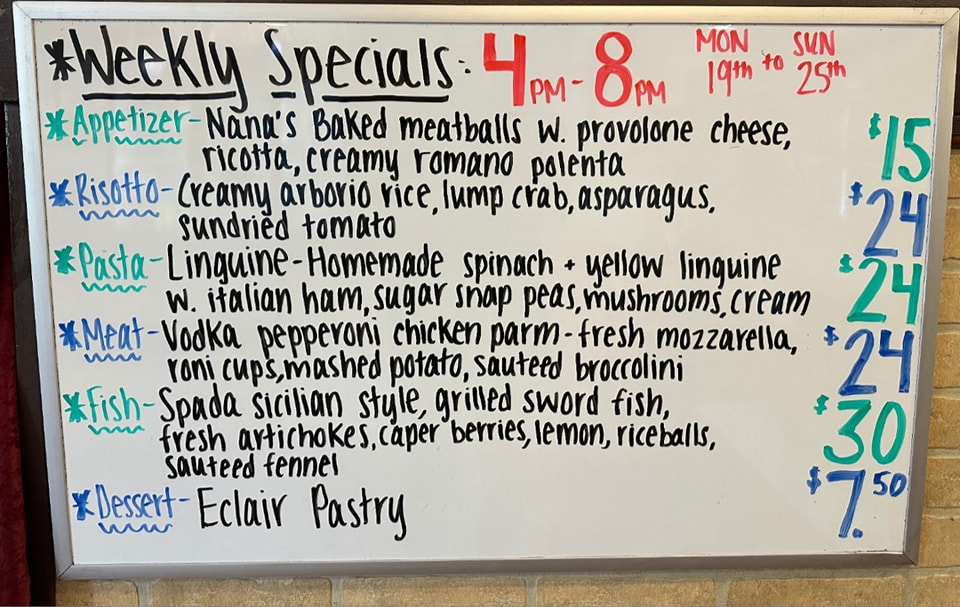 *Weekly Specials: 4PM-8PM MON 19th to SUN 25th
*Appetizer- Nana's Baked meatballs w. provolone cheese, $15
ricotta, creamy romano polenta
*Risotto- Creamy arborio rice, lump crab, asparagus, $24
sundried tomato
*Pasta- Linguine- Homemade spinach + yellow linguine $24
w. italian ham, sugar snap peas, mushrooms, cream
*Meat- Vodka pepperoni chicken parm- fresh mozzarella, $24
roni cups, mashed potato, sauteed broccolini
*Fish- Spada sicilian style, grilled sword fish, $30
fresh artichokes, caper berries, lemon, riceballs,
sauteed fennel
*Dessert- Eclair Pastry $7.50